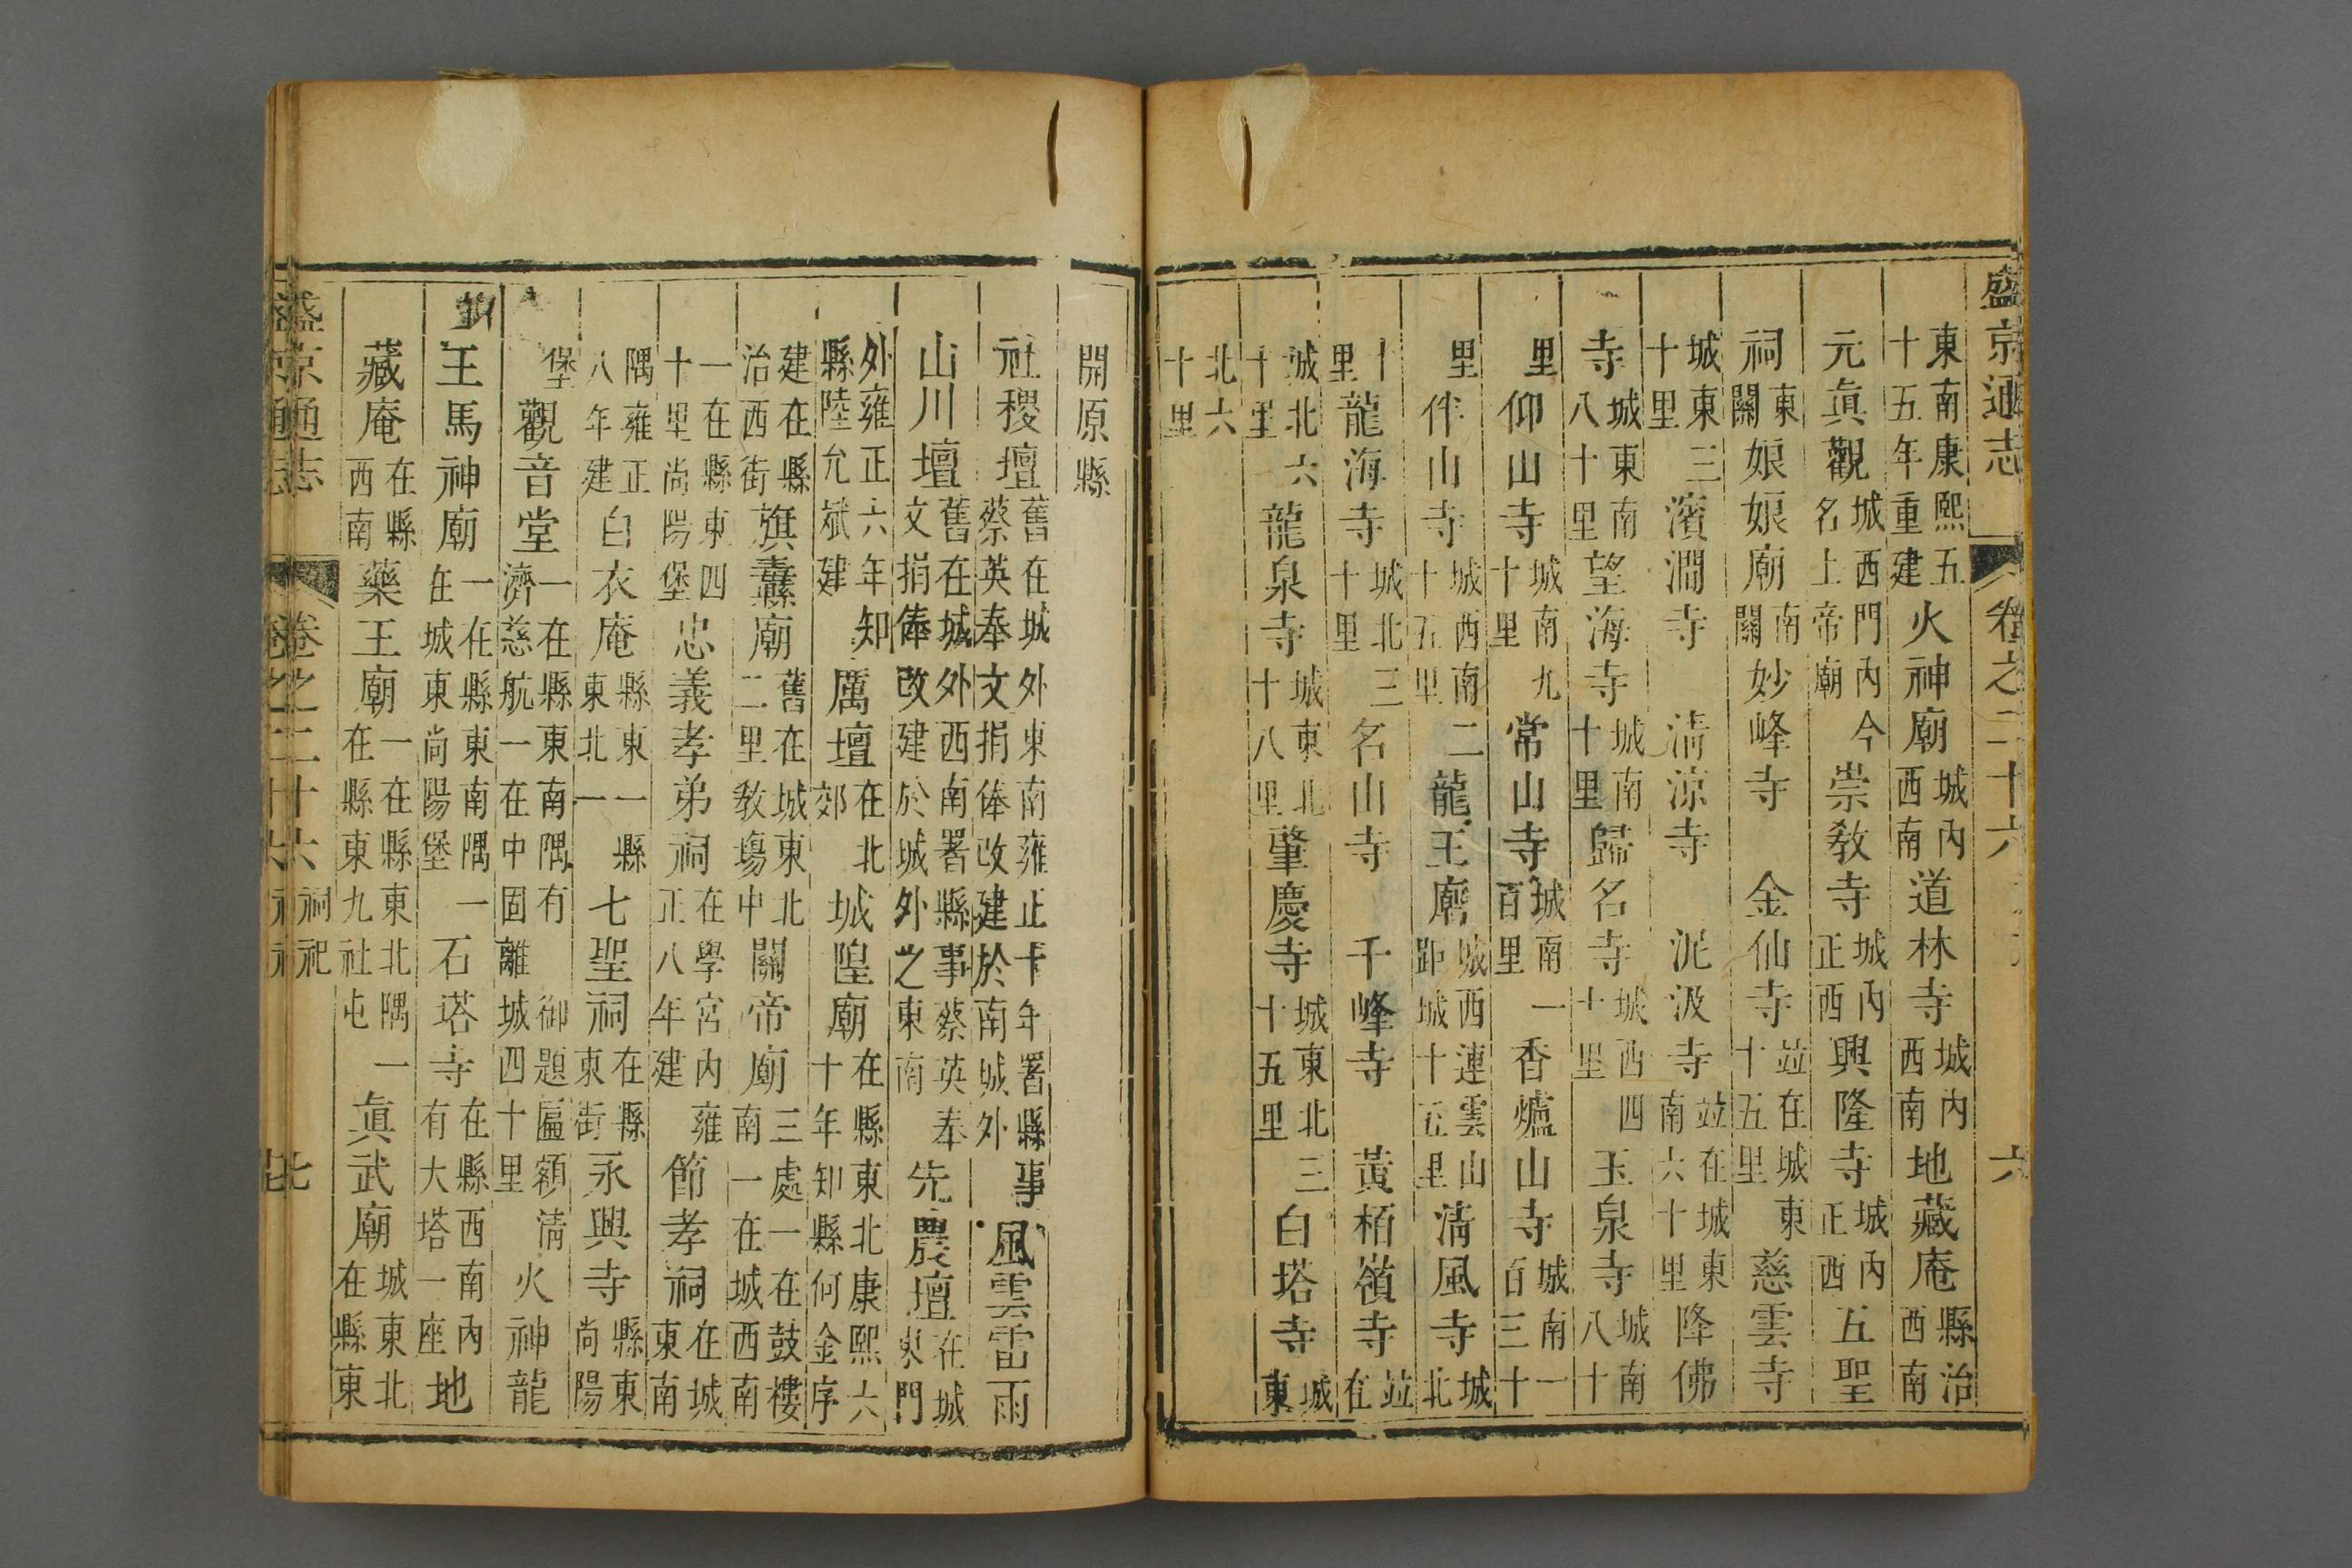 盛京通志 卷之二十六 六
東南康熙五十五年重建火神廟城內西南道林寺城內西南地藏庵縣治西南
元眞觀城西門內今名上帝廟崇教寺城內正西興隆寺城內正西五聖
祠東關娘娘廟南關妙峰寺 金仙寺竝在城東十五里慈雲寺
城東三十里濱澗寺 清涼寺 泥汲寺竝在城東南六十里降佛
寺城東南八十里望海寺城南十里歸名寺城西四十里玉泉寺城南八十
里仰山寺城南九十里常山寺城南一百里香爐山寺城南一百三十
里伴山寺城西南十五里二龍王廟城西連雲山距城十五里清風寺城北
十里龍海寺城北三十里名山寺 千峰寺 黃栢嶺寺竝在
城北六十里龍泉寺城東北十八里肇慶寺城東北三十五里白塔寺城東
北六十里
開原縣
社稷壇舊在城外東南雍正十年署縣事蔡英奉文捐俸改建於南城外風雲雷雨
山川壇舊在城外西南署縣事蔡英奉文捐俸改建於城外之東南先農壇在城東門
外雍正六年知縣陸允斌建厲壇在北郊城隍廟在縣東北康熙六十年知縣何金序
建在縣治西街旗纛廟舊在城東北二里教塲中關帝廟三處一在鼓樓南一在城西南
一在縣東四十里尚陽堡忠義孝弟祠在學宮內雍正八年建節孝祠在城東南
隅雍正八年建白衣庵縣東一縣東北一七聖祠在縣東街永興寺縣東尚陽
堡觀音堂一在縣東南隅有御題匾額清濟慈航一在中固離城四十里火神龍
王馬神廟一在縣東南隅一在城東尚陽堡石塔寺在縣西南內有大塔一座地
藏庵在縣西南藥王廟一在縣東北隅一在縣東九社屯眞武廟城東北在縣東
盛京通志 卷之二十六 祠祀 七